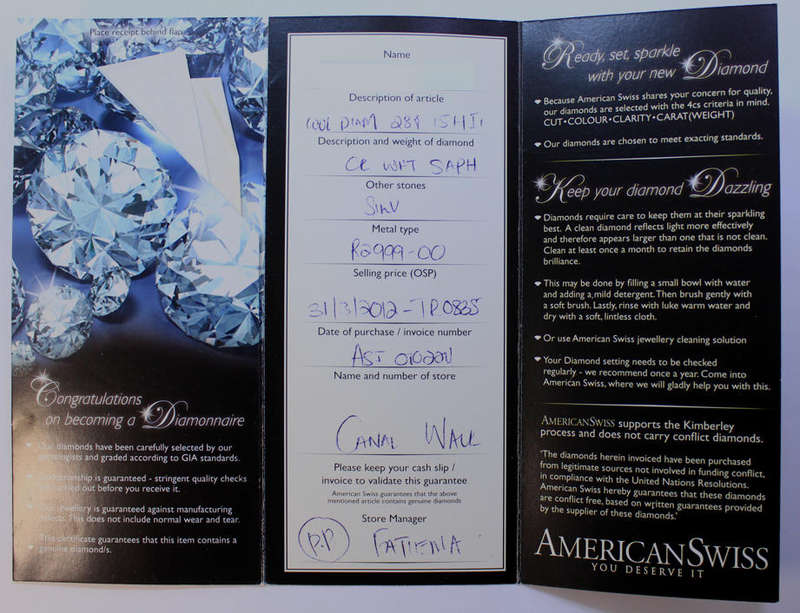 Place receipt behind flap
Congratulations
on becoming a Diamonnaire
Our diamonds have been carefully selected by our
gemologists and graded according to GIA standards.
is guaranteed - stringent quality checks
out before you receive it.
jewellery is guaranteed against manufacturing
This does not include normal wear and tear.
certificate guarantees that this item contains a
genuine diamond/s.
Name
Description of article
COOL DIAM 289 ISHI1
Description and weight of diamond
CR WHT SAPH
Other stones
SILV
Metal type
R2999-00
Selling price (OSP)
31/3/2012 - TR0885
Date of purchase / invoice number
Name and number of store
CANAL WALK
Please keep your cash slip /
invoice to validate this guarantee
American Swiss guarantees that the above
mentioned article contains genuine diamonds
Store Manager
P.P FATIEMA
Ready, set, sparkle
with your new Diamond
Because American Swiss shares your concern for quality,
our diamonds are selected with the 4cs criteria in mind.
CUT • COLOUR • CLARITY • CARAT (WEIGHT)
Our diamonds are chosen to meet exacting standards.
Keep your diamond Dazzling
Diamonds require care to keep them at their sparkling
best. A clean diamond reflects light more effectively
and therefore appears larger than one that is not clean.
Clean at least once a month to retain the diamonds
brilliance.
This may be done by filling a small bowl with water
and adding a mild detergent. Then brush gently with
a soft brush. Lastly, rinse with luke warm water and
dry with a soft, lintless cloth.
Or use American Swiss jewellery cleaning solution
Your Diamond setting needs to be checked
regularly - we recommend once a year. Come into
American Swiss, where we will gladly help you with this.
AMERICANSWISS supports the Kimberley
process and does not carry conflict diamonds.
'The diamonds herein invoiced have been purchased
from legitimate sources not involved in funding conflict,
in compliance with the United Nations Resolutions.
American Swiss hereby guarantees that these diamonds
are conflict free, based on written guarantees provided
by the supplier of these diamonds.'
AMERICANSWISS
YOU DESERVE IT